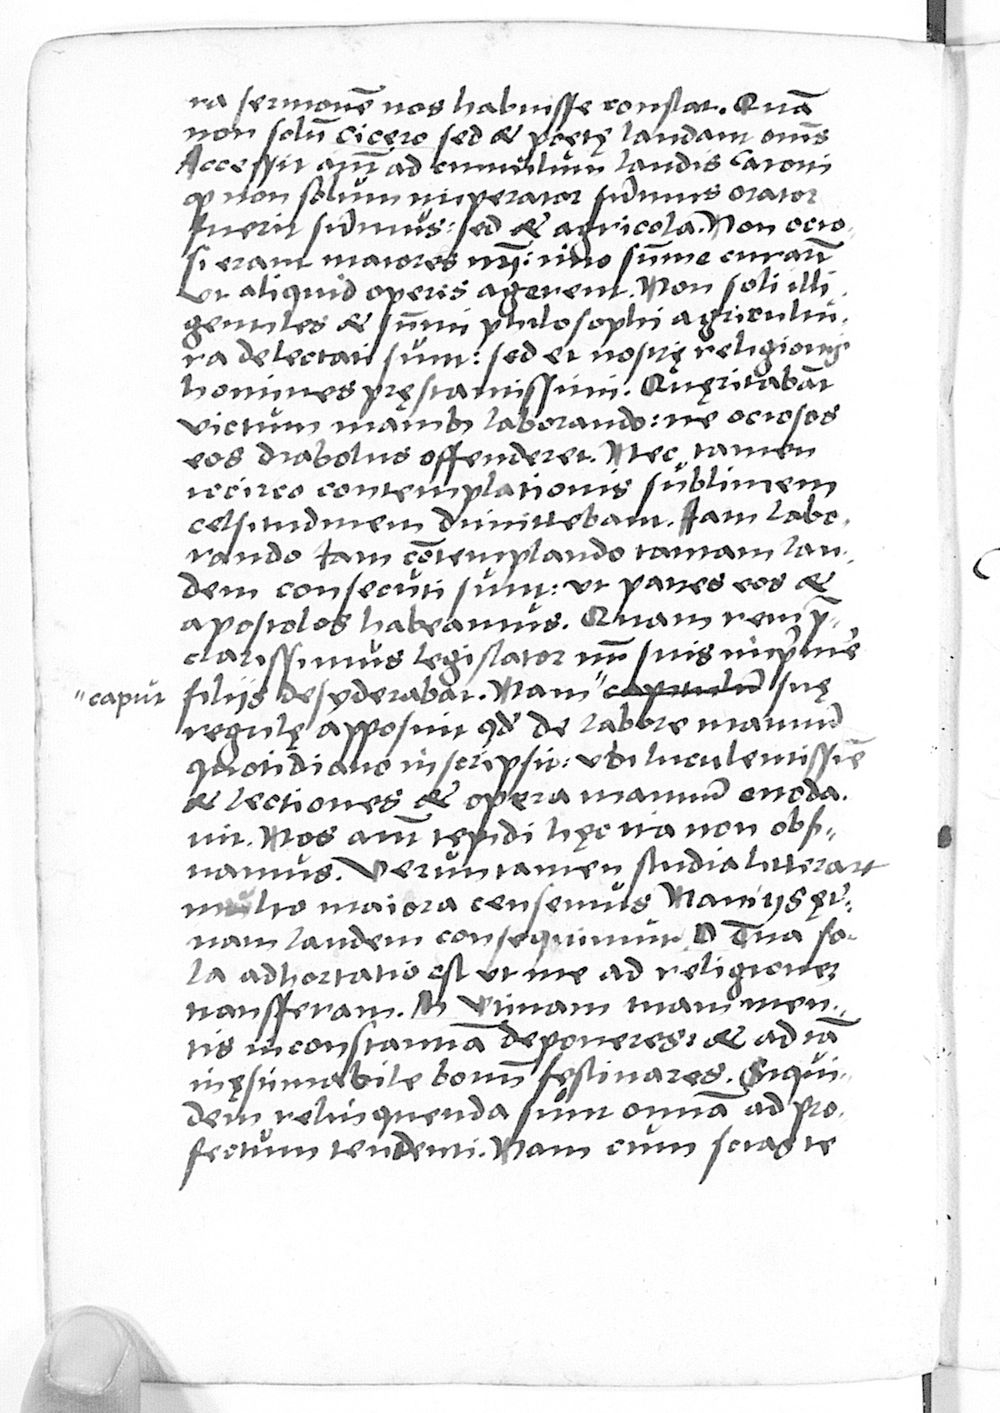 ra sermonē nos habuisse constat. Quā
non solū cicero sed & poetę laudant om̄s
Accessit aūt ad cumulum laudis Catoni
ꝙ non solum imperator sūmus orator
fuerit sūmus: sed & agricola. Non ocio-
si erant maiores nr̄i: imo sūme curarūt
ut aliquid operis agerent. Non soli illi
gentiles & sūmi philosophi agricultu-
ra delectati sunt: sed et nostrę religionis
homines pręstantissimi. Quęritabāt
victum manib; laborando: ne ociosos
eos diabolus offenderet. Nec tamen
iccirco contemplationis sublimem
celsitudinem dimittebant. Iam labo-
rando Iam cōtemplando tantam lau-
dem consecuti sunt: ut patres eos &
apostolos habeamus. Quam rem p̄-
clarissimus legislator nr̄ suis inprimē
"caput filijs desyderabat. Nam" capitulū suę
regulę apposuit qd̄ de labore manuū
quotidiano inscripsit: ubi luculentissīe
& lectiones & opera manuū enoda-
uit. Nos aūt tepidi hęc ita non obser-
uamus. Veruntamen studia litterarū
multo maiora censemus Nam ijs ęter-
nam laudem consequimur. D Tua so-
la adhortatio est ut me ad religionem
transferam. M Utinam tuam men-
tis inconstantiā deponeres: & ad tā
inęstimabile bonū festinares. Siqui-
dem relinquenda sunt omnia ad pro-
fectum tendenti. Nam cum scias te